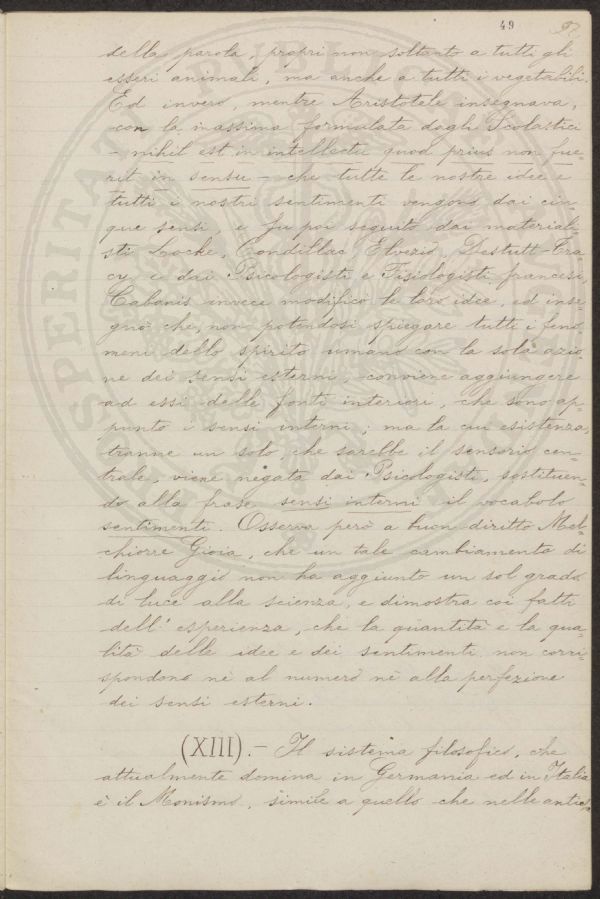 49
della parola, propri non soltanto a tutti gli
esseri animali, ma anche a tutti i vegetabili.
Ed invero, mentre Aristotele insegnava,
con la massima formulata dagli Scolastici
- nihil est in intellectu quod prius non fue-
rit in sensu - che tutte le nostre idee e
tutti i nostri sentimenti vengono dai cin-
que sensi, e fu poi seguito dai materiali-
sti Locke, Condillac, Elvezio, Destutt-Tra-
cy, e dai Psicologisti e Fisiologisti francesi,
Cabanis invece modificò le loro idee, ed inse-
gnò che, non potendosi spiegare tutti i feno-
meni dello spirito umano con la sola azio-
ne dei sensi esterni, conviene aggiungere
ad essi delle fonti interiori, che sono ap-
punto i sensi interni; ma la cui esistenza,
tranne un solo, che sarebbe il sensorio cen-
trale, viene negata dai Psicologisti, sostituen-
do alla frase sensi interni il vocabolo
sentimenti. Osserva però a buon diritto Mel-
chiorre Gioia, che un tale cambiamento di
linguaggio non ha aggiunto un sol grado
di luce alla scienza, e dimostra coi fatti
dell'esperienza, che la quantità e la qua-
lità delle idee e dei sentimenti non corri-
spondono nè al numero nè alla perfezione
dei sensi esterni.
(XIII).- Il sistema filosofico, che
attualmente domina in Germania ed in Italia
è il Monismo, simile a quello che nelle antic